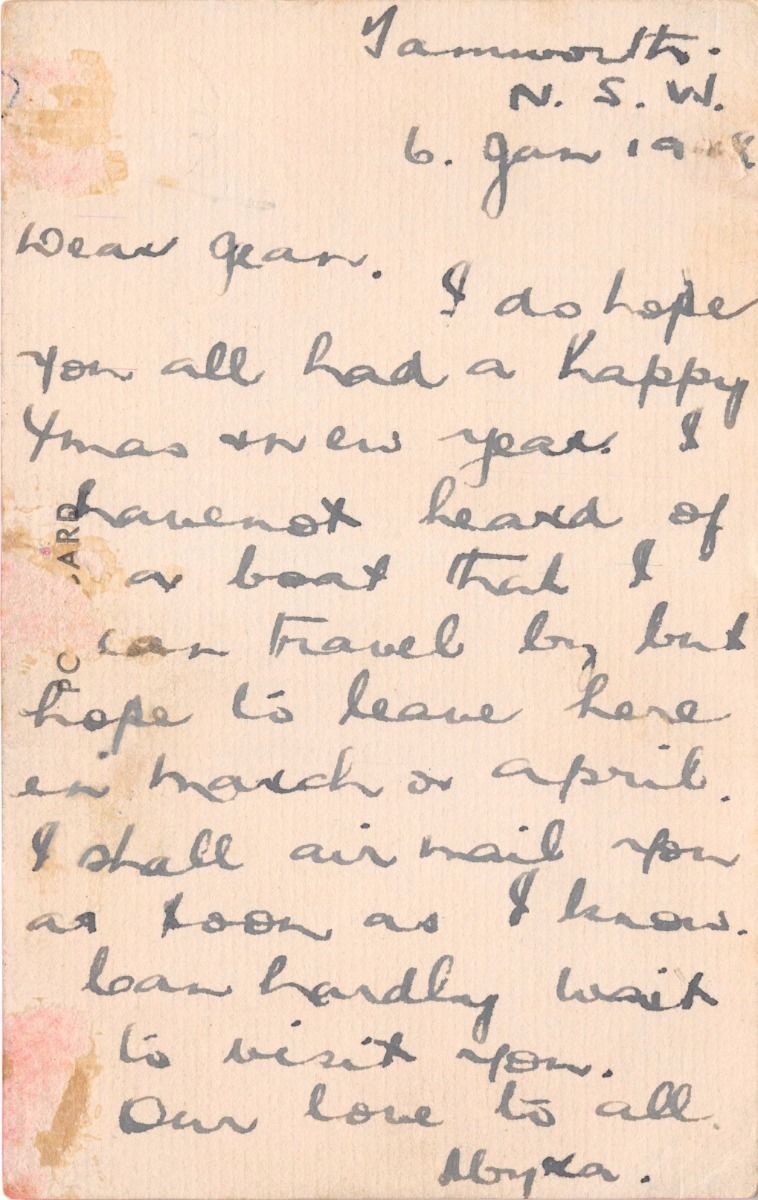 Tamworth.
N. S. W.
6. Jan 19
Dear Jean.
I do hope
you all had a happy
Xmas & new year. I
have not heard of
a boat that I
can travel by but
hope to leave here
in March or April.
I shall air mail you
as soon as I know.
Can hardly wait
to visit you.
Our love to all.
ARD